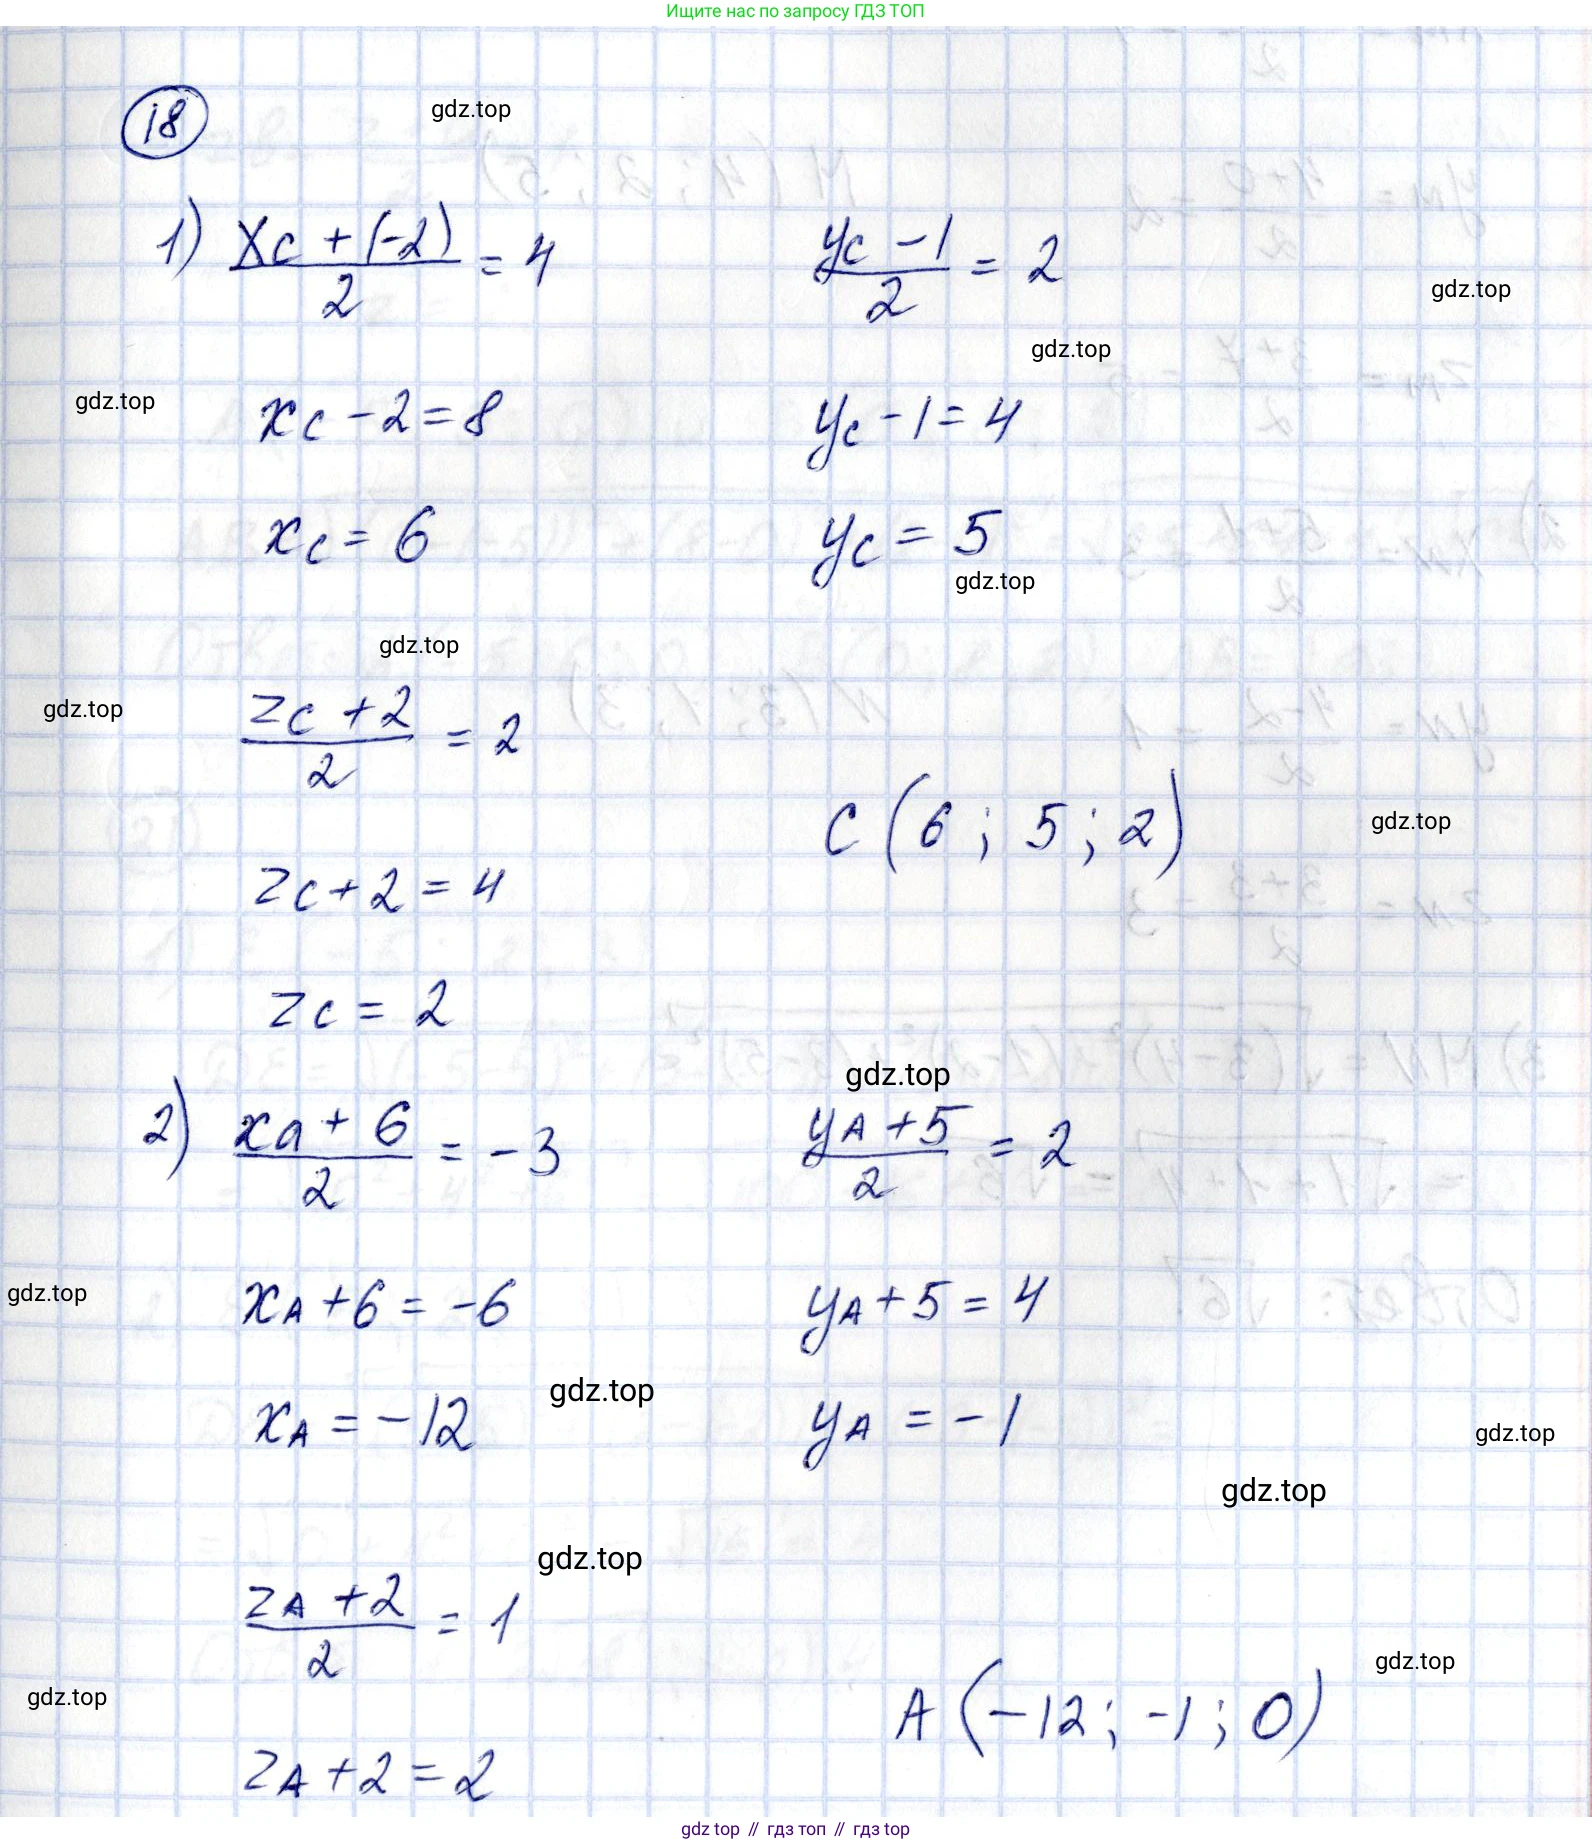 Ищите нас по запросу ГДЗ ТОП
18
gdz.top
1) (xc + (-2))/2 = 4
(yc - 1)/2 = 2
gdz.top
gdz.top
gdz.top
xc - 2 = 8
yc - 1 = 4
xc = 6
yc = 5
gdz.top
gdz.top
gdz.top
(zc + 2)/2 = 2
C (6 ; 5 ; 2)
gdz.top
zc + 2 = 4
zc = 2
gdz.top
2) (xa + 6)/2 = -3
(yA + 5)/2 = 2
gdz.top
xA + 6 = -6
yA + 5 = 4
gdz.top
xA = -12
yA = -1
gdz.top
gdz.top
gdz.top
(zA + 2)/2 = 1
gdz.top
gdz.top
A (-12 ; -1 ; 0)
zA + 2 = 2
gdz.top // гдз топ // гдз top